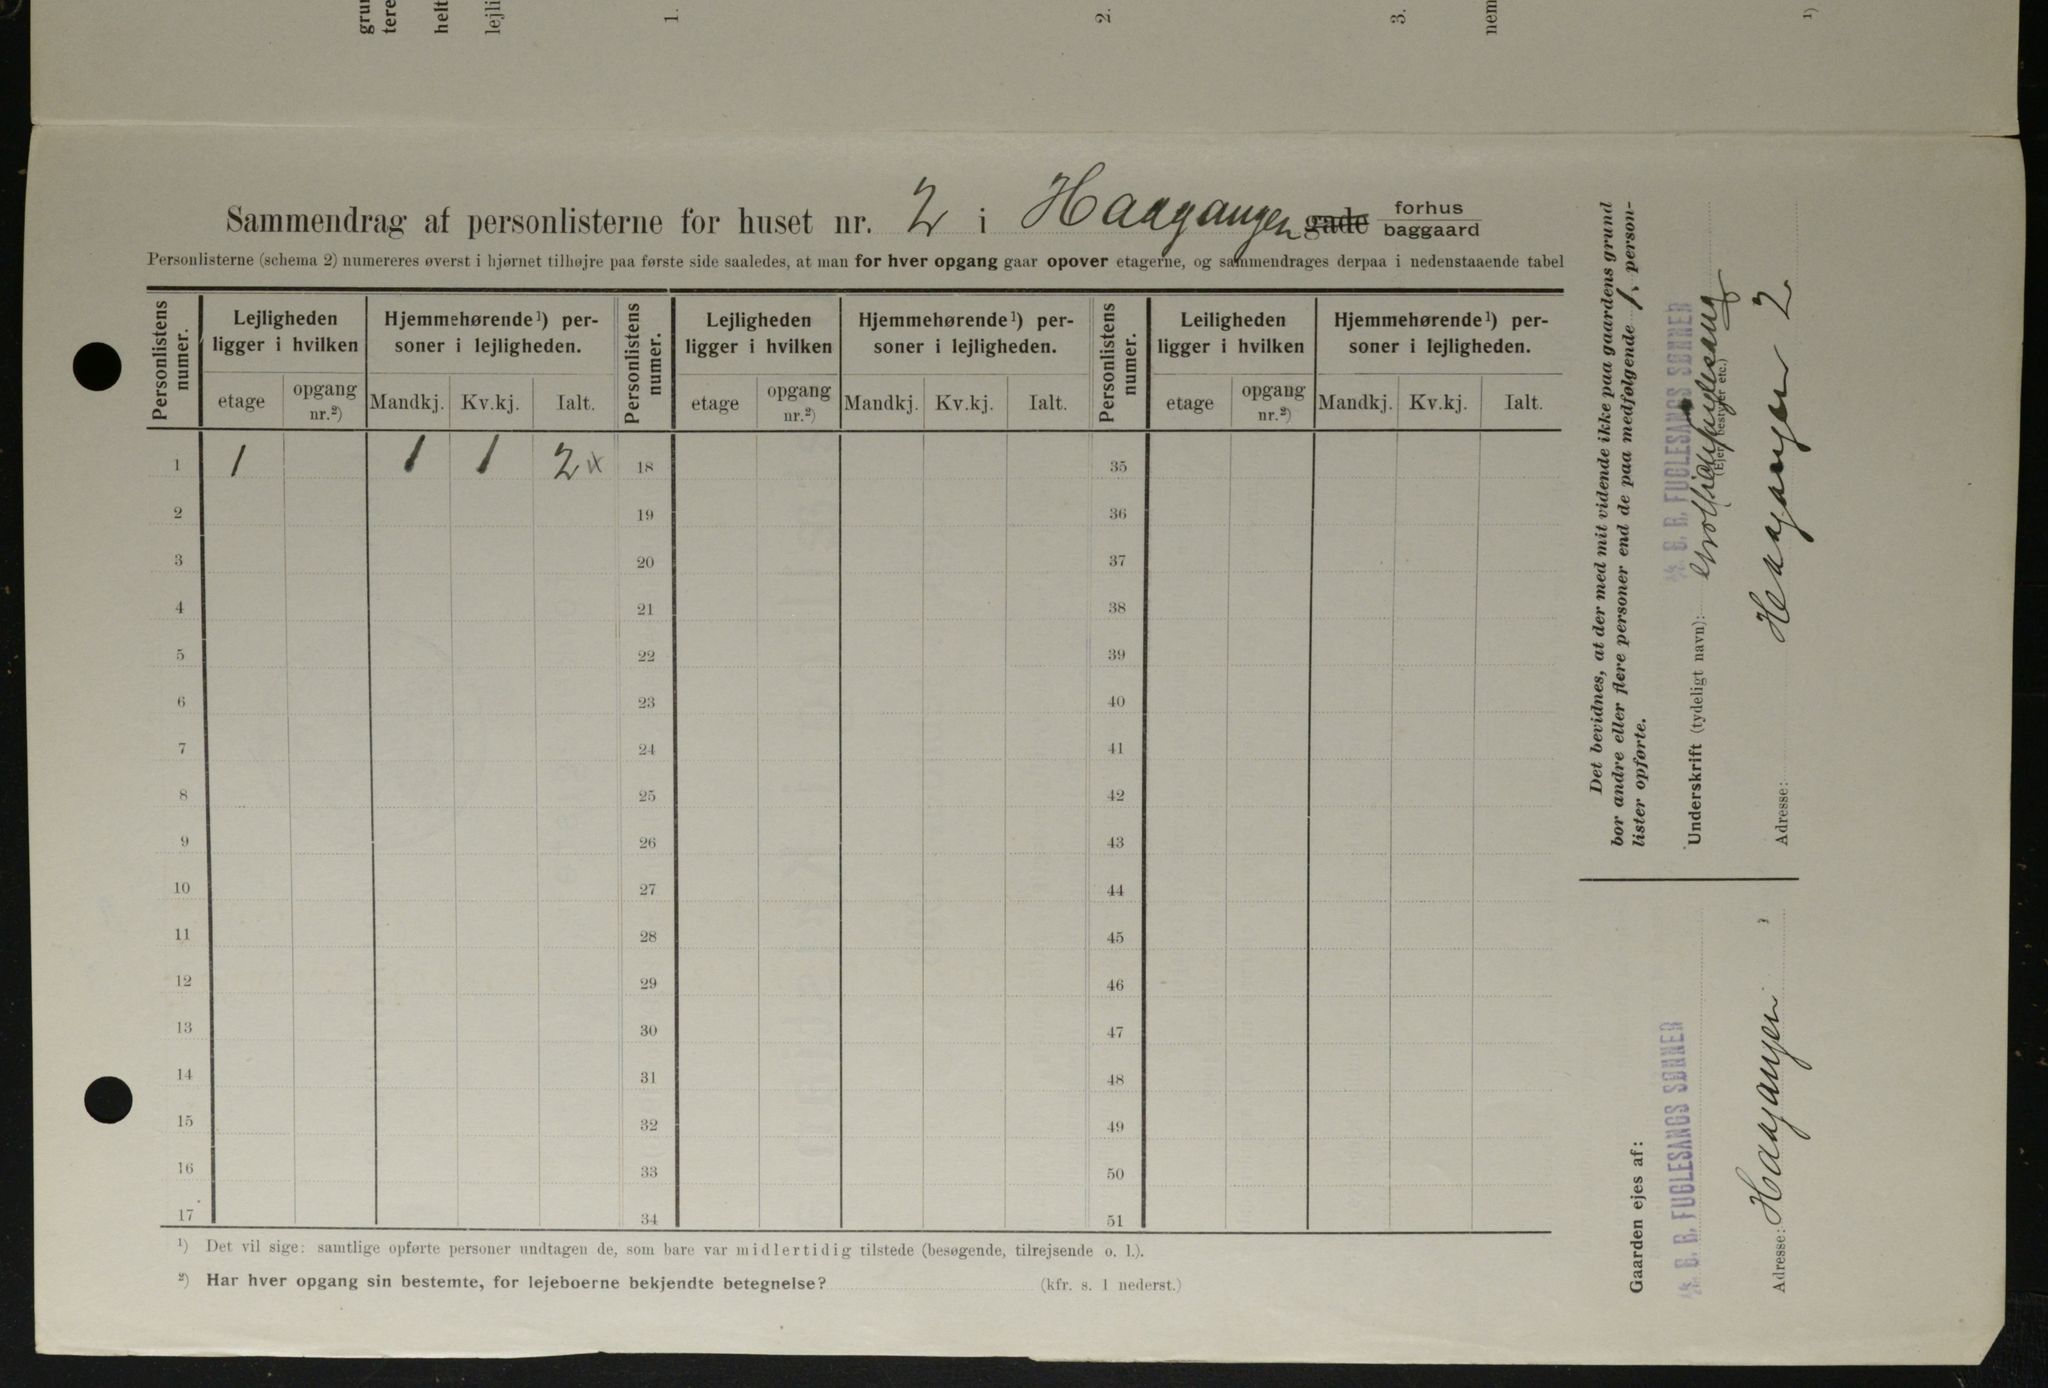 grun
tere
helt
lejli
1.
2.
3.
nem
1)
Sammendrag af personlisterne for huset nr. 2 i Haagangen gade forhus baggaard
Personlisterne (schema 2) numereres øverst i hjørnet tilhøjre paa første side saaledes, at man for hver opgang gaar opover etagerne, og sammendrages derpaa i nedenstaaende tabel
Personlistens numer. Lejligheden ligger i hvilken Hjemmehørende¹) personer i lejligheden. Personlistens numer. Lejligheden ligger i hvilken Hjemmehørende¹) personer i lejligheden. Personlistens numer. Leiligheden ligger i hvilken Hjemmehørende¹) personer i lejligheden.
etage opgang nr.²) Mandkj. Kv.kj. Ialt. etage opgang nr.²) Mandkj. Kv.kj. Ialt. etage opgang nr.²) Mandkj. Kv.kj. Ialt.
1 1 1 1 2 x 18 35
2 19 36
3 20 37
4 21 38
5 22 39
6 23 40
7 24 41
8 25 42
9 26 43
10 27 44
11 28 45
12 29 46
13 30 47
14 31 48
15 32 49
16 33 50
17 34 51
¹) Det vil sige: samtlige opførte personer undtagen de, som bare var midlertidig tilstede (besøgende, tilrejsende o. l.).
²) Har hver opgang sin bestemte, for lejeboerne bekjendte betegnelse? (kfr. s. 1 nederst.)
Det bevidnes, at der med mit vidende ikke paa gaardens grund
bor andre eller flere personer end de paa medfølgende 1 person-
lister opførte.
B. FUGLESANGS SØNNER
Underskrift (tydeligt navn):
(Ejer, bestyrer etc.)
Adresse: Haagangen 2
Gaarden ejes af:
B. FUGLESANGS SØNNER
Adresse: Haagangen